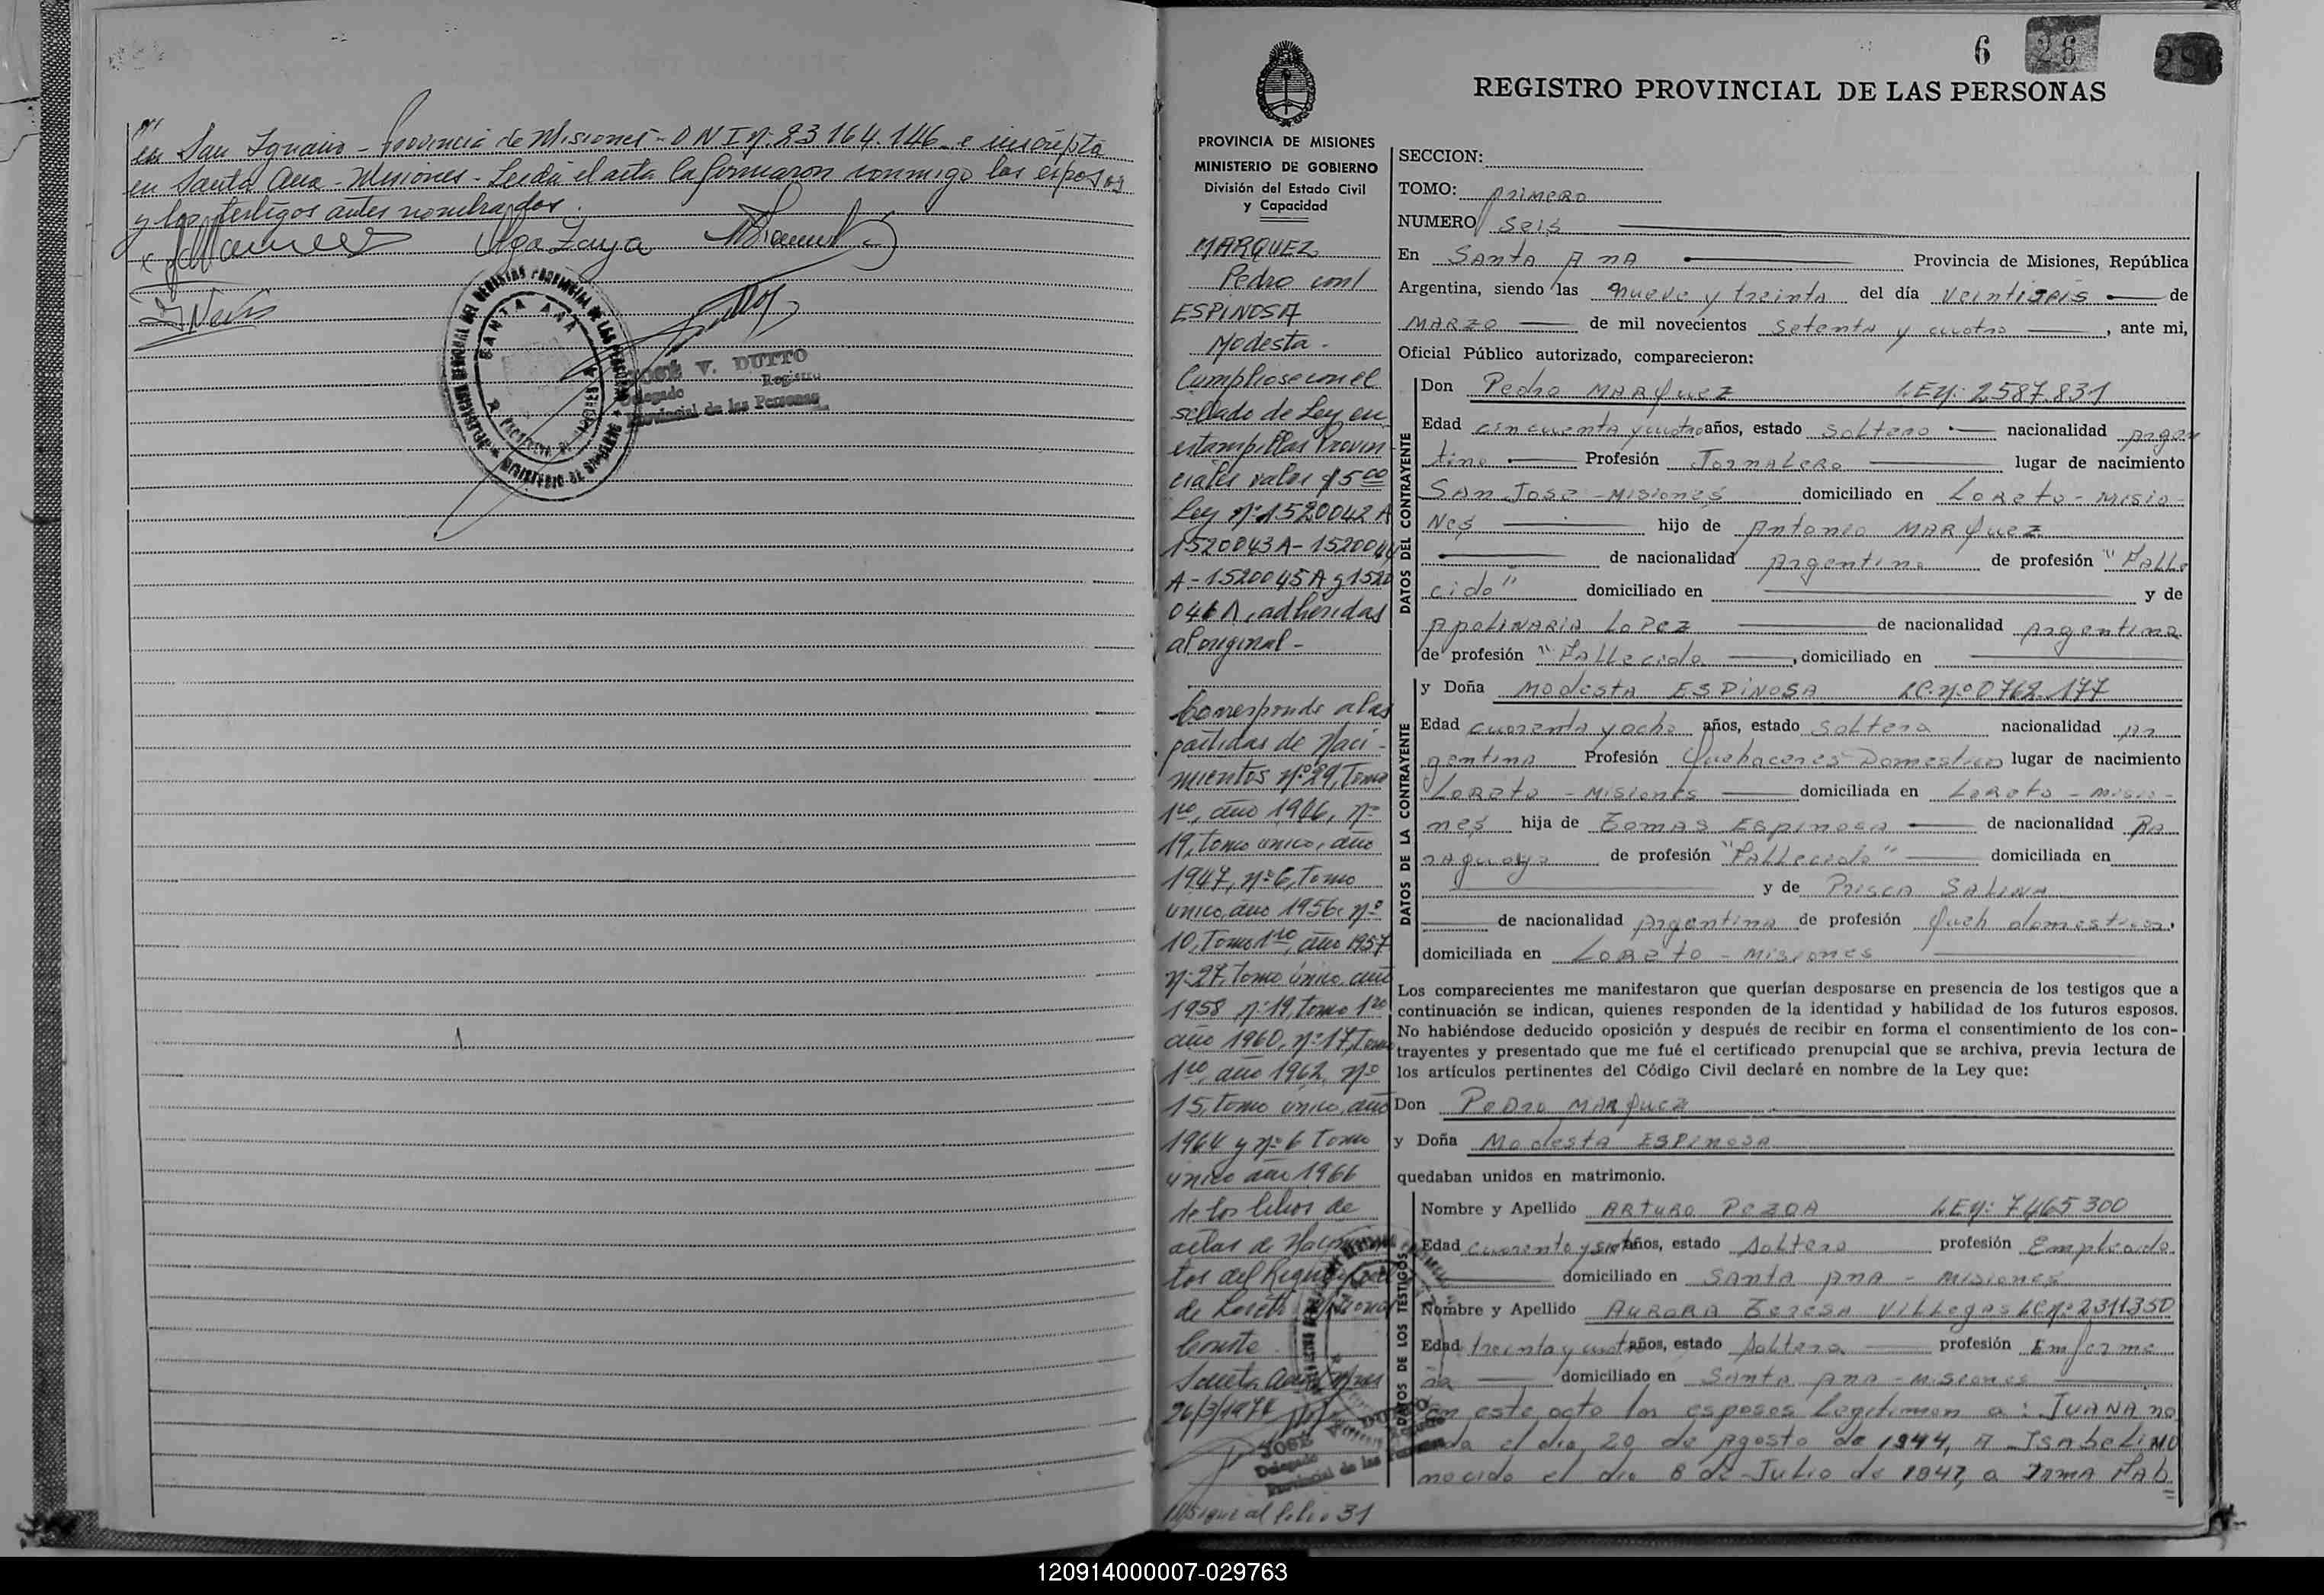 en San Ignacio - Provincia de Misiones - D N I Nº 23 164.146 - e inscripta
en Santa Ana - Misiones - Leída el acta la firmaron conmigo los esposos
y los testigos antes nombrados.
Olga Zaya
SANTA ANA
JOSÉ V. DUTTO
Delegado Registro
Provincial de las Personas
6 28
REGISTRO PROVINCIAL DE LAS PERSONAS
PROVINCIA DE MISIONES
MINISTERIO DE GOBIERNO
División del Estado Civil
y Capacidad
MARQUEZ
Pedro con/
ESPINOSA
Modesta -
Cumpliose con el
sellado de Ley en
estampillas Provin
ciales valor $ 5 00
Ley Nº 1520042 A
1520043 A - 1520044
A - 1520045 A y 1520
046 A, adheridas
al original -
Corresponde a las
partidas de Naci-
mientos Nº 29, Tomo
1ro, año 1946, Nº
19, tomo unico, año
1947, Nº 6, Tomo
unico, año 1956, Nº
10, Tomo 1ro, año 1957
Nº 27, Tomo único, año
1958 Nº 19, Tomo 1ro
año 1960, Nº 17, Tomo
1ro, año 1962, Nº
15, tomo unico, año
1964 y Nº 6 Tomo
unico año 1966
de los libros de
actas de Nacimien
tos del Registro
de Loreto Misiones
Conste.
Santa Ana, Mnes
26/3/1974
JOSE V. DUTTO
Delegado Registro
Provincial de las Personas
Sigue al folio 31
SECCION:
TOMO: Primero
NUMERO Seis
En Santa Ana Provincia de Misiones, República
Argentina, siendo las nueve y treinta del día veintiseis de
MARZO de mil novecientos setenta y cuatro, ante mi,
Oficial Público autorizado, comparecieron:
DATOS DEL CONTRAYENTE
Don Pedro MARquez L.E Nº: 2.587.831
Edad cincuenta y cuatro años, estado soltero nacionalidad Argen
tino Profesión Jornalero lugar de nacimiento
San Jose - Misiones domiciliado en Loreto - Misio-
nes hijo de Antonio MARquez
de nacionalidad Argentina de profesión "Falle
cido" domiciliado en y de
Apolinaria Lopez de nacionalidad Argentina
de profesión "Fallecida, domiciliado en
DATOS DE LA CONTRAYENTE
y Doña Modesta ESPINOSA LC. Nº 0762.177
Edad cuarenta y ocho años, estado soltera nacionalidad Ar
gentina Profesión Quehaceres Domesticos lugar de nacimiento
Loreto - Misiones domiciliada en Loreto - Misio-
nes hija de Tomas Espinosa de nacionalidad Pa
raguaya de profesión "Fallecido" domiciliada en
y de Prisca Salina
de nacionalidad Argentina de profesión Queh domesticos,
domiciliada en Loreto - Misiones
Los comparecientes me manifestaron que querían desposarse en presencia de los testigos que a
continuación se indican, quienes responden de la identidad y habilidad de los futuros esposos.
No habiéndose deducido oposición y después de recibir en forma el consentimiento de los con-
trayentes y presentado que me fué el certificado prenupcial que se archiva, previa lectura de
los artículos pertinentes del Código Civil declaré en nombre de la Ley que:
Don Pedro MARquez
y Doña Modesta ESPINOSA
quedaban unidos en matrimonio.
DATOS DE LOS TESTIGOS
Nombre y Apellido ARTURO PEZOA L.E Nº: 7.465 300
Edad cuarenta y siete años, estado soltero profesión Empleado
domiciliado en Santa Ana - Misiones
Nombre y Apellido AURORA Teresa Villegas LC Nº 2311350
Edad treinta y cuatro años, estado soltera profesión Enferme
ra domiciliado en Santa Ana - Misiones
En este acto los esposos legitiman a: JUANA na
cida el dia 20 de Agosto de 1944, A ISABELINO
nacido el dia 8 de Julio de 1947, a IRMA FAB
120914000007-029763